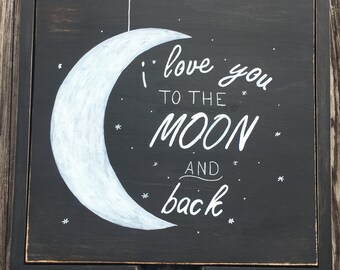 i love you
TO THE
MOON
AND
back